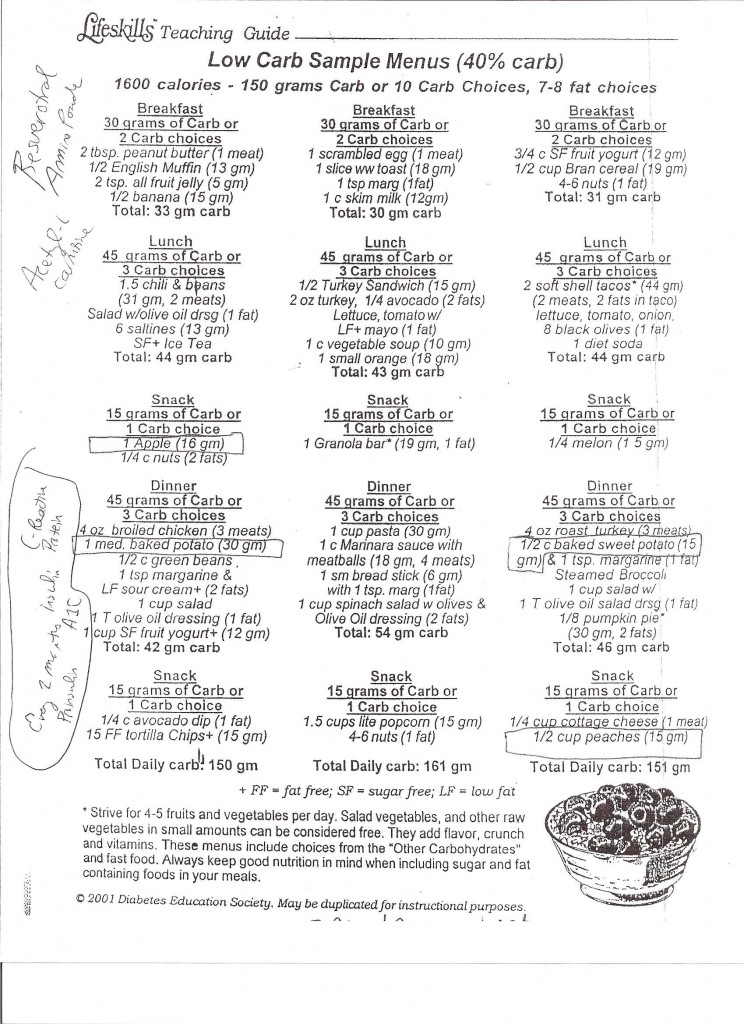 Lifeskills Teaching Guide
Low Carb Sample Menus (40% carb)
1600 calories - 150 grams Carb or 10 Carb Choices, 7-8 fat choices
Breakfast
30 grams of Carb or
2 Carb choices
2 tbsp. peanut butter (1 meat)
1/2 English Muffin (13 gm)
2 tsp. all fruit jelly (5 gm)
1/2 banana (15 gm)
Total: 33 gm carb
Lunch
45 grams of Carb or
3 Carb choices
1.5 chili & beans
(31 gm, 2 meats)
Salad w/olive oil drsg (1 fat)
6 saltines (13 gm)
SF+ Ice Tea
Total: 44 gm carb
Snack
15 grams of Carb or
1 Carb choice
1 Apple (16 gm)
1/4 c nuts (2 fats)
Dinner
45 grams of Carb or
3 Carb choices
4 oz broiled chicken (3 meats)
1 med. baked potato (30 gm)
1/2 c green beans
1 tsp margarine &
LF sour cream+ (2 fats)
1 cup salad
1 T olive oil dressing (1 fat)
1 cup SF fruit yogurt+ (12 gm)
Total: 42 gm carb
Snack
15 grams of Carb or
1 Carb choice
1/4 c avocado dip (1 fat)
15 FF tortilla Chips+ (15 gm)
Total Daily carb: 150 gm
Breakfast
30 grams of Carb or
2 Carb choices
1 scrambled egg (1 meat)
1 slice ww toast (18 gm)
1 tsp marg (1fat)
1 c skim milk (12gm)
Total: 30 gm carb
Lunch
45 grams of Carb or
3 Carb choices
1/2 Turkey Sandwich (15 gm)
2 oz turkey, 1/4 avocado (2 fats)
Lettuce, tomato w/
LF+ mayo (1 fat)
1 c vegetable soup (10 gm)
1 small orange (18 gm)
Total: 43 gm carb
Snack
15 grams of Carb or
1 Carb choice
1 Granola bar* (19 gm, 1 fat)
Dinner
45 grams of Carb or
3 Carb choices
1 cup pasta (30 gm)
1 c Marinara sauce with
meatballs (18 gm, 4 meats)
1 sm bread stick (6 gm)
with 1 tsp. marg (1fat)
1 cup spinach salad w olives &
Olive Oil dressing (2 fats)
Total: 54 gm carb
Snack
15 grams of Carb or
1 Carb choice
1.5 cups lite popcorn (15 gm)
4-6 nuts (1 fat)
Total Daily carb: 161 gm
Breakfast
30 grams of Carb or
2 Carb choices
3/4 c SF fruit yogurt (12 gm)
1/2 cup Bran cereal (19 gm)
4-6 nuts (1 fat)
Total: 31 gm carb
Lunch
45 grams of Carb or
3 Carb choices
2 soft shell tacos* (44 gm)
(2 meats, 2 fats in taco)
lettuce, tomato, onion,
8 black olives (1 fat)
1 diet soda
Total: 44 gm carb
Snack
15 grams of Carb or
1 Carb choice
1/4 melon (1 5 gm)
Dinner
45 grams of Carb or
3 Carb choices
4 oz roast turkey (3 meats)
1/2 c baked sweet potato (15
gm) & 1 tsp. margarine (1 fat)
Steamed Broccoli
1 cup salad w/
1 T olive oil salad drsg (1 fat)
1/8 pumpkin pie*
(30 gm, 2 fats)
Total: 46 gm carb
Snack
15 grams of Carb or
1 Carb choice
1/4 cup cottage cheese (1 meat)
1/2 cup peaches (15 gm)
Total Daily carb: 151 gm
+ FF = fat free; SF = sugar free; LF = low fat
* Strive for 4-5 fruits and vegetables per day. Salad vegetables, and other raw
vegetables in small amounts can be considered free. They add flavor, crunch
and vitamins. These menus include choices from the "Other Carbohydrates"
and fast food. Always keep good nutrition in mind when including sugar and fat
containing foods in your meals.
© 2001 Diabetes Education Society. May be duplicated for instructional purposes.
Resverotral
Amino
Acetyl-L
Carnitine
C-Reactive
Protein
Every 2 months Insulin A1C
Proinsulin